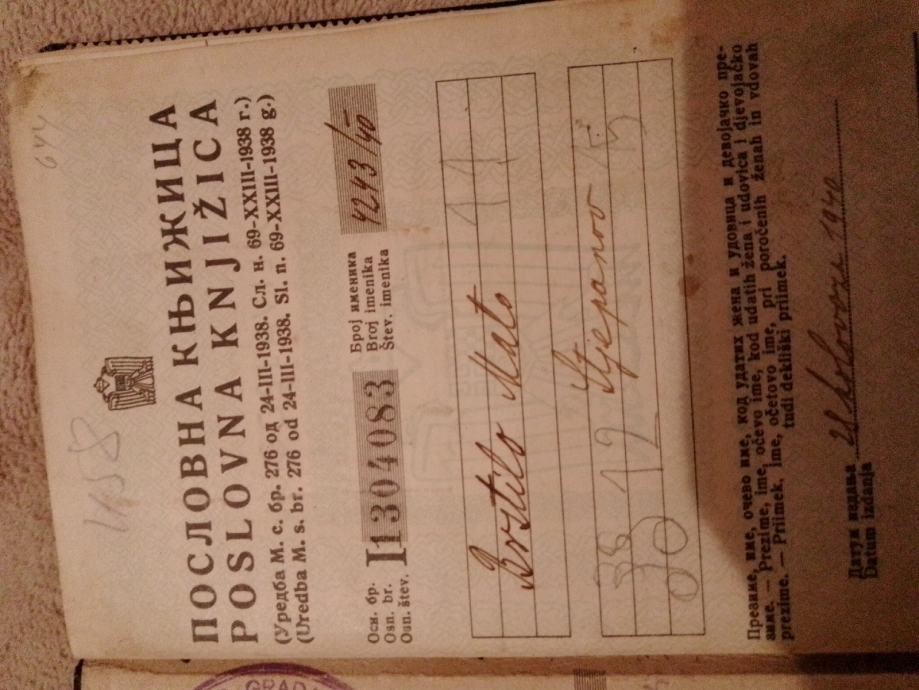 644
1158
ПОСЛОВНА КЊИЖИЦА
POSLOVNA KNJIŽICA
(Уредба М. с. бр. 276 од 24-III-1938. Сл. н. 69-XXIII-1938 г.)
(Uredba M. s. br. 276 od 24-III-1938. Sl. n. 69-XXIII-1938 g.)
Осн. бр.
Osn. br.
Osn. štev.
I 1304083
Број именика
Broj imenika
Štev. imenika
4243/40
Brstilo Mato
Stjepanov
38 12
Презиме, име, очево име, код удатих жена и удовица и девојачко пре-
зиме. — Prezime, ime, očevo ime, kod udatih žena i udovica i djevojačko
prezime. — Priimek, ime, očetovo ime, pri poročenih ženah in vdovah
tudi dekliški priimek.
Датум издања
Datum izdanja
28 kolovoza 1940
GRAD